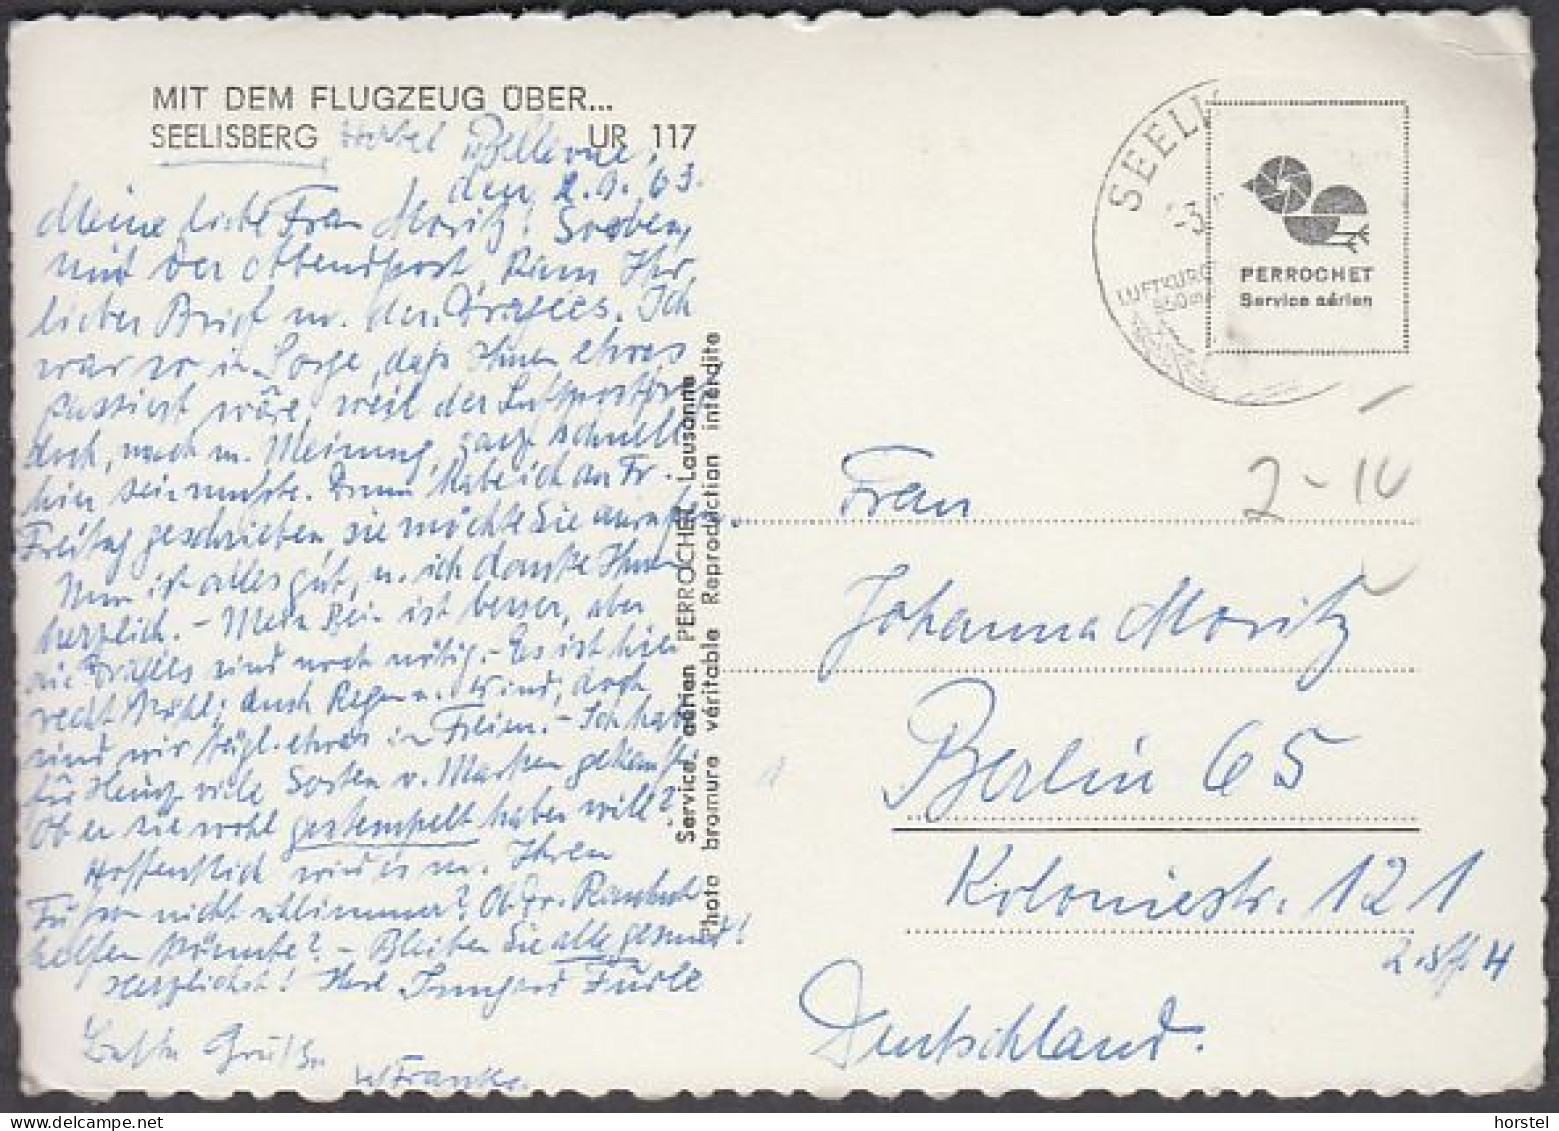 MIT DEM FLUGZEUG ÜBER...
SEELISBERG Hotel Bellevue, UR 117
den 2.9.63.
Meine liebe Frau Moritz! Soeben,
mit der Abendpost, kam Ihr
lieber Brief m. den Dragees. Ich
war so in Sorge, daß Ihnen etwas
passiert wäre, weil der Luftpostbrief
doch, nach m. Meinung, ganz schnell
hier sein mußte. Drum habe ich an Fr.
Freitag geschrieben, sie möchte Sie anrufen.
Nun ist alles gut, u. ich danke Ihnen
herzlich. – Mein Bein ist besser, aber
die Dragees sind noch nötig. – Es ist hier
recht kühl, auch Regen u. Wind, doch
sind wir tägl. etwas im Freien. – Ich habe
für Heinz viele Sorten v. Marken gekauft.
Ob er sie wohl gestempelt haben will?
Hoffentlich wird es m. Ihren
Füßen nicht schlimmer? Ob Dr.
helfen könnte? – Bleiben Sie alle gesund!
Herzlichst! Ihre Irmgard
Beste Grüße
W Franke.
Service aérien PERROCHET Lausanne
Photo bromure véritable Reproduction interdite
SEELI
-3.
LUFTKURO
850m
PERROCHET
Service aérien
2-10
Frau
Johanna Moritz
Berlin 65
Koloniestr. 121
Deutschland.